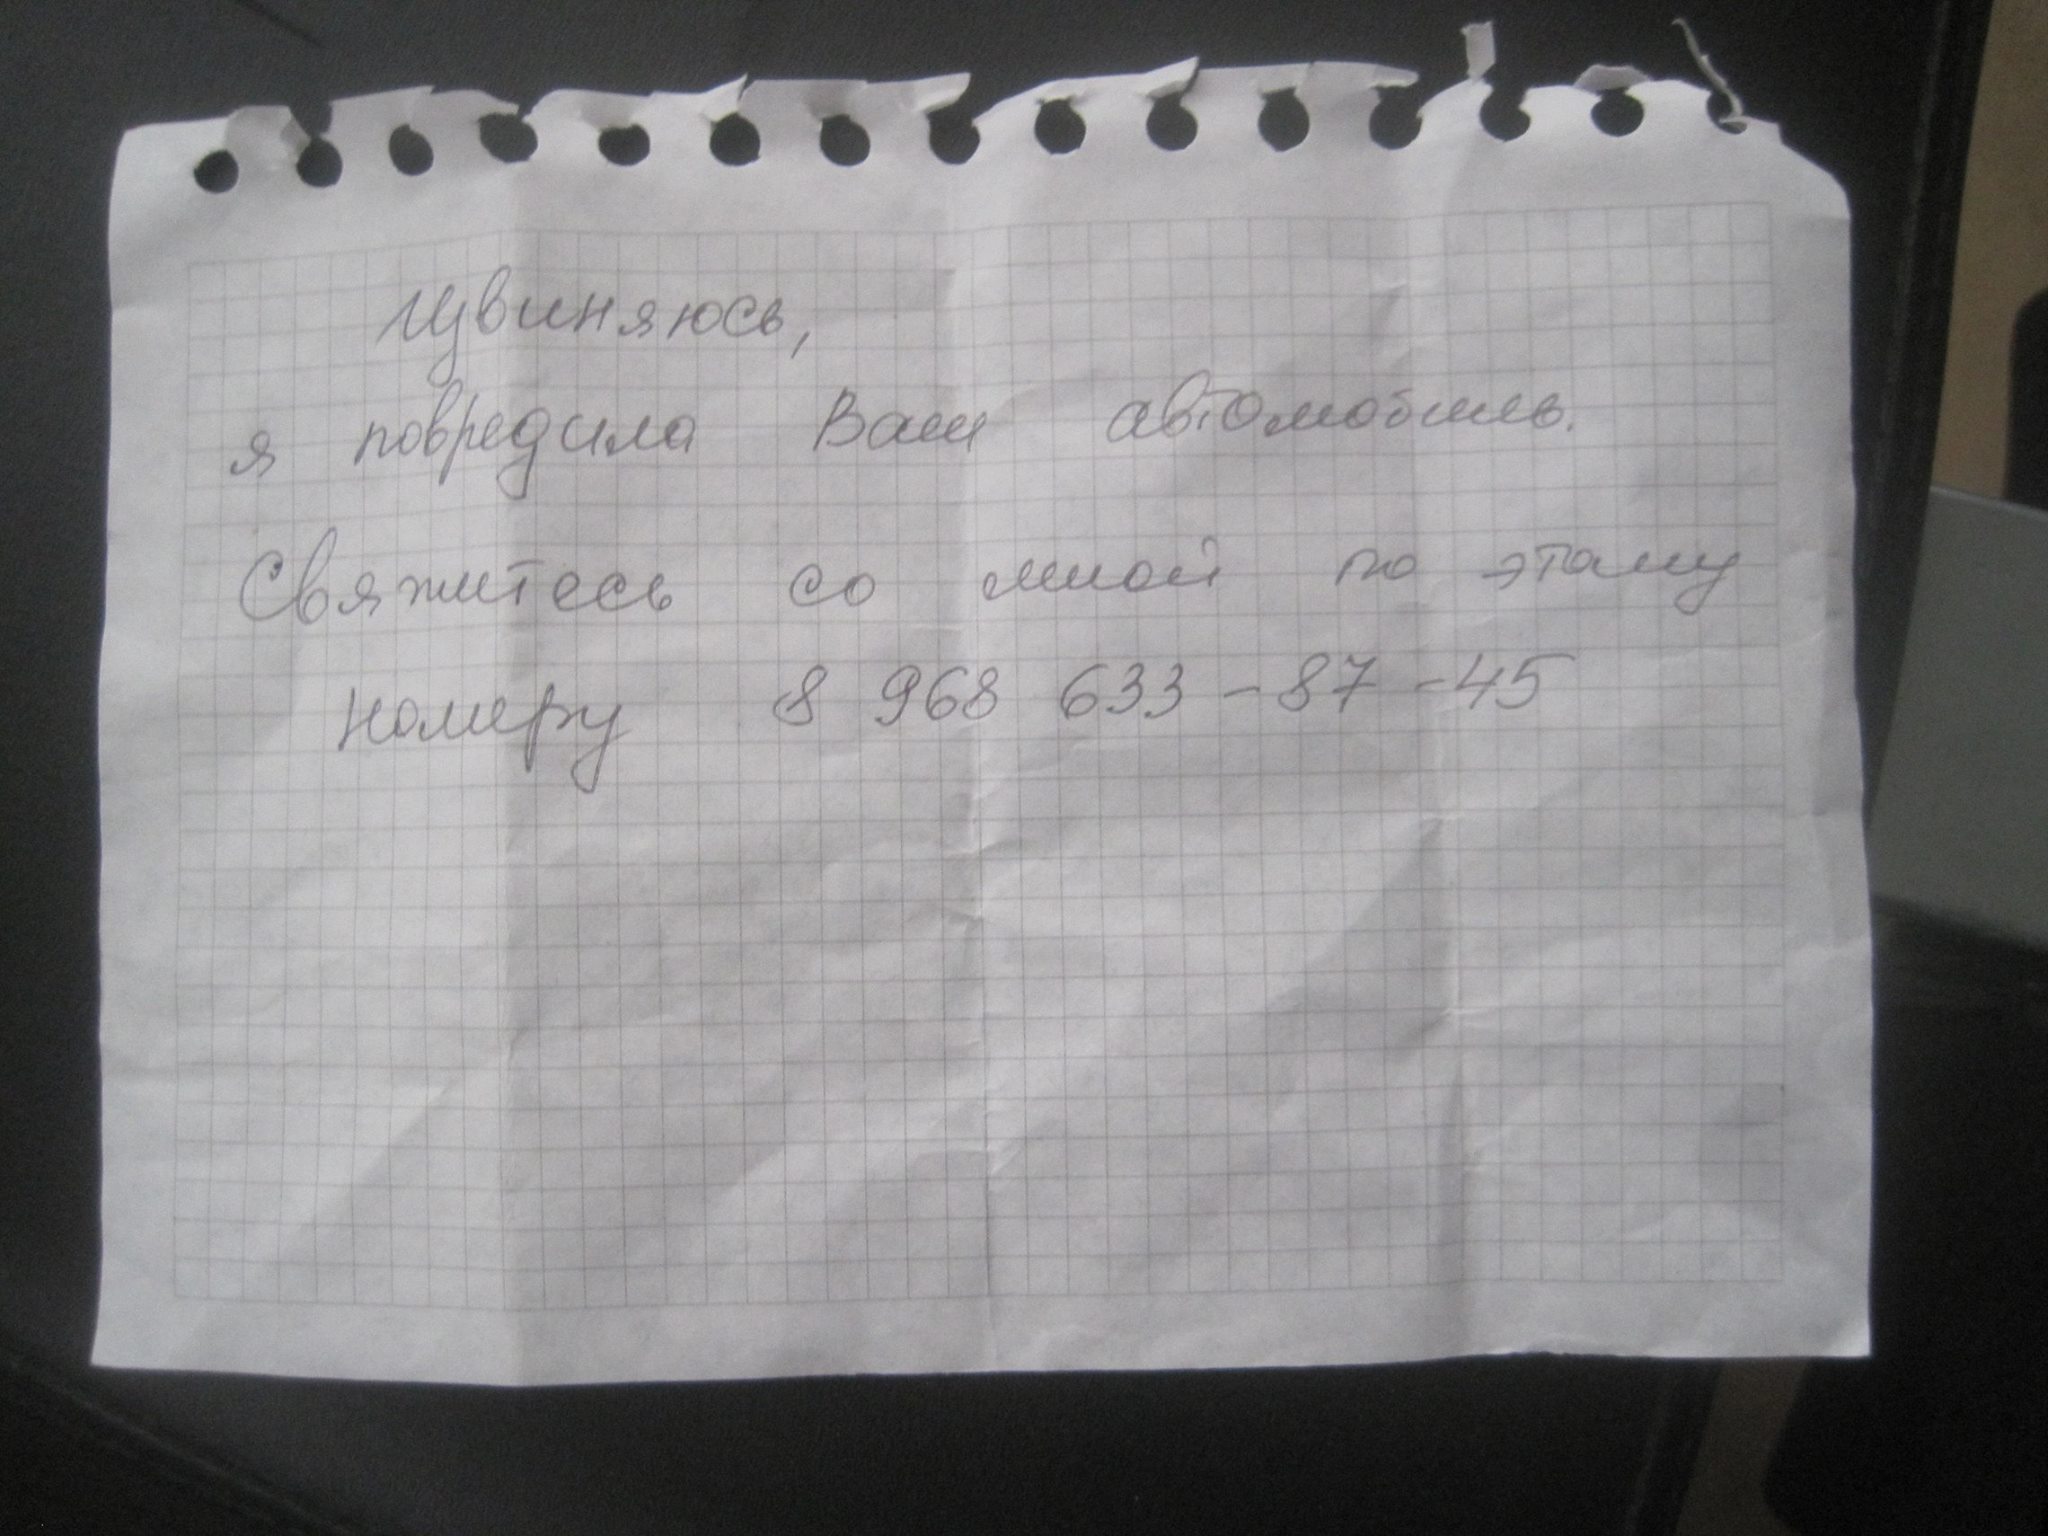 Извиняюсь,
я повредила Ваш автомобиль.
Свяжитесь со мной по этому
номеру 8 968 633-87-45